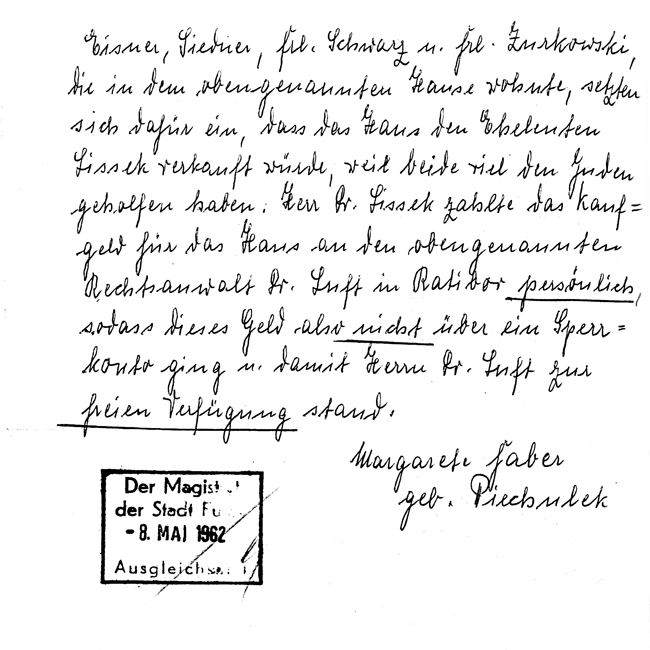 Eisner, Siedner, frl. Schwarz u. frl. Zurkowski,
die in dem obengenannten Hause wohnte, setzten
sich dafür ein, dass das Haus den Eheleuten
Lissek verkauft würde, weil beide viel den Juden
geholfen haben. Herr Dr. Lissek zahlte das Kauf=
geld für das Haus an den obengenannten
Rechtsanwalt Dr. Luft in Ratibor persönlich,
sodass dieses Geld also nicht über ein Sperr=
konto ging u. damit Herrn Dr. Luft zur
freien Verfügung stand.
Margarete Faber
geb. Piechulek
Der
der Stadt
- 8. MAI 1962